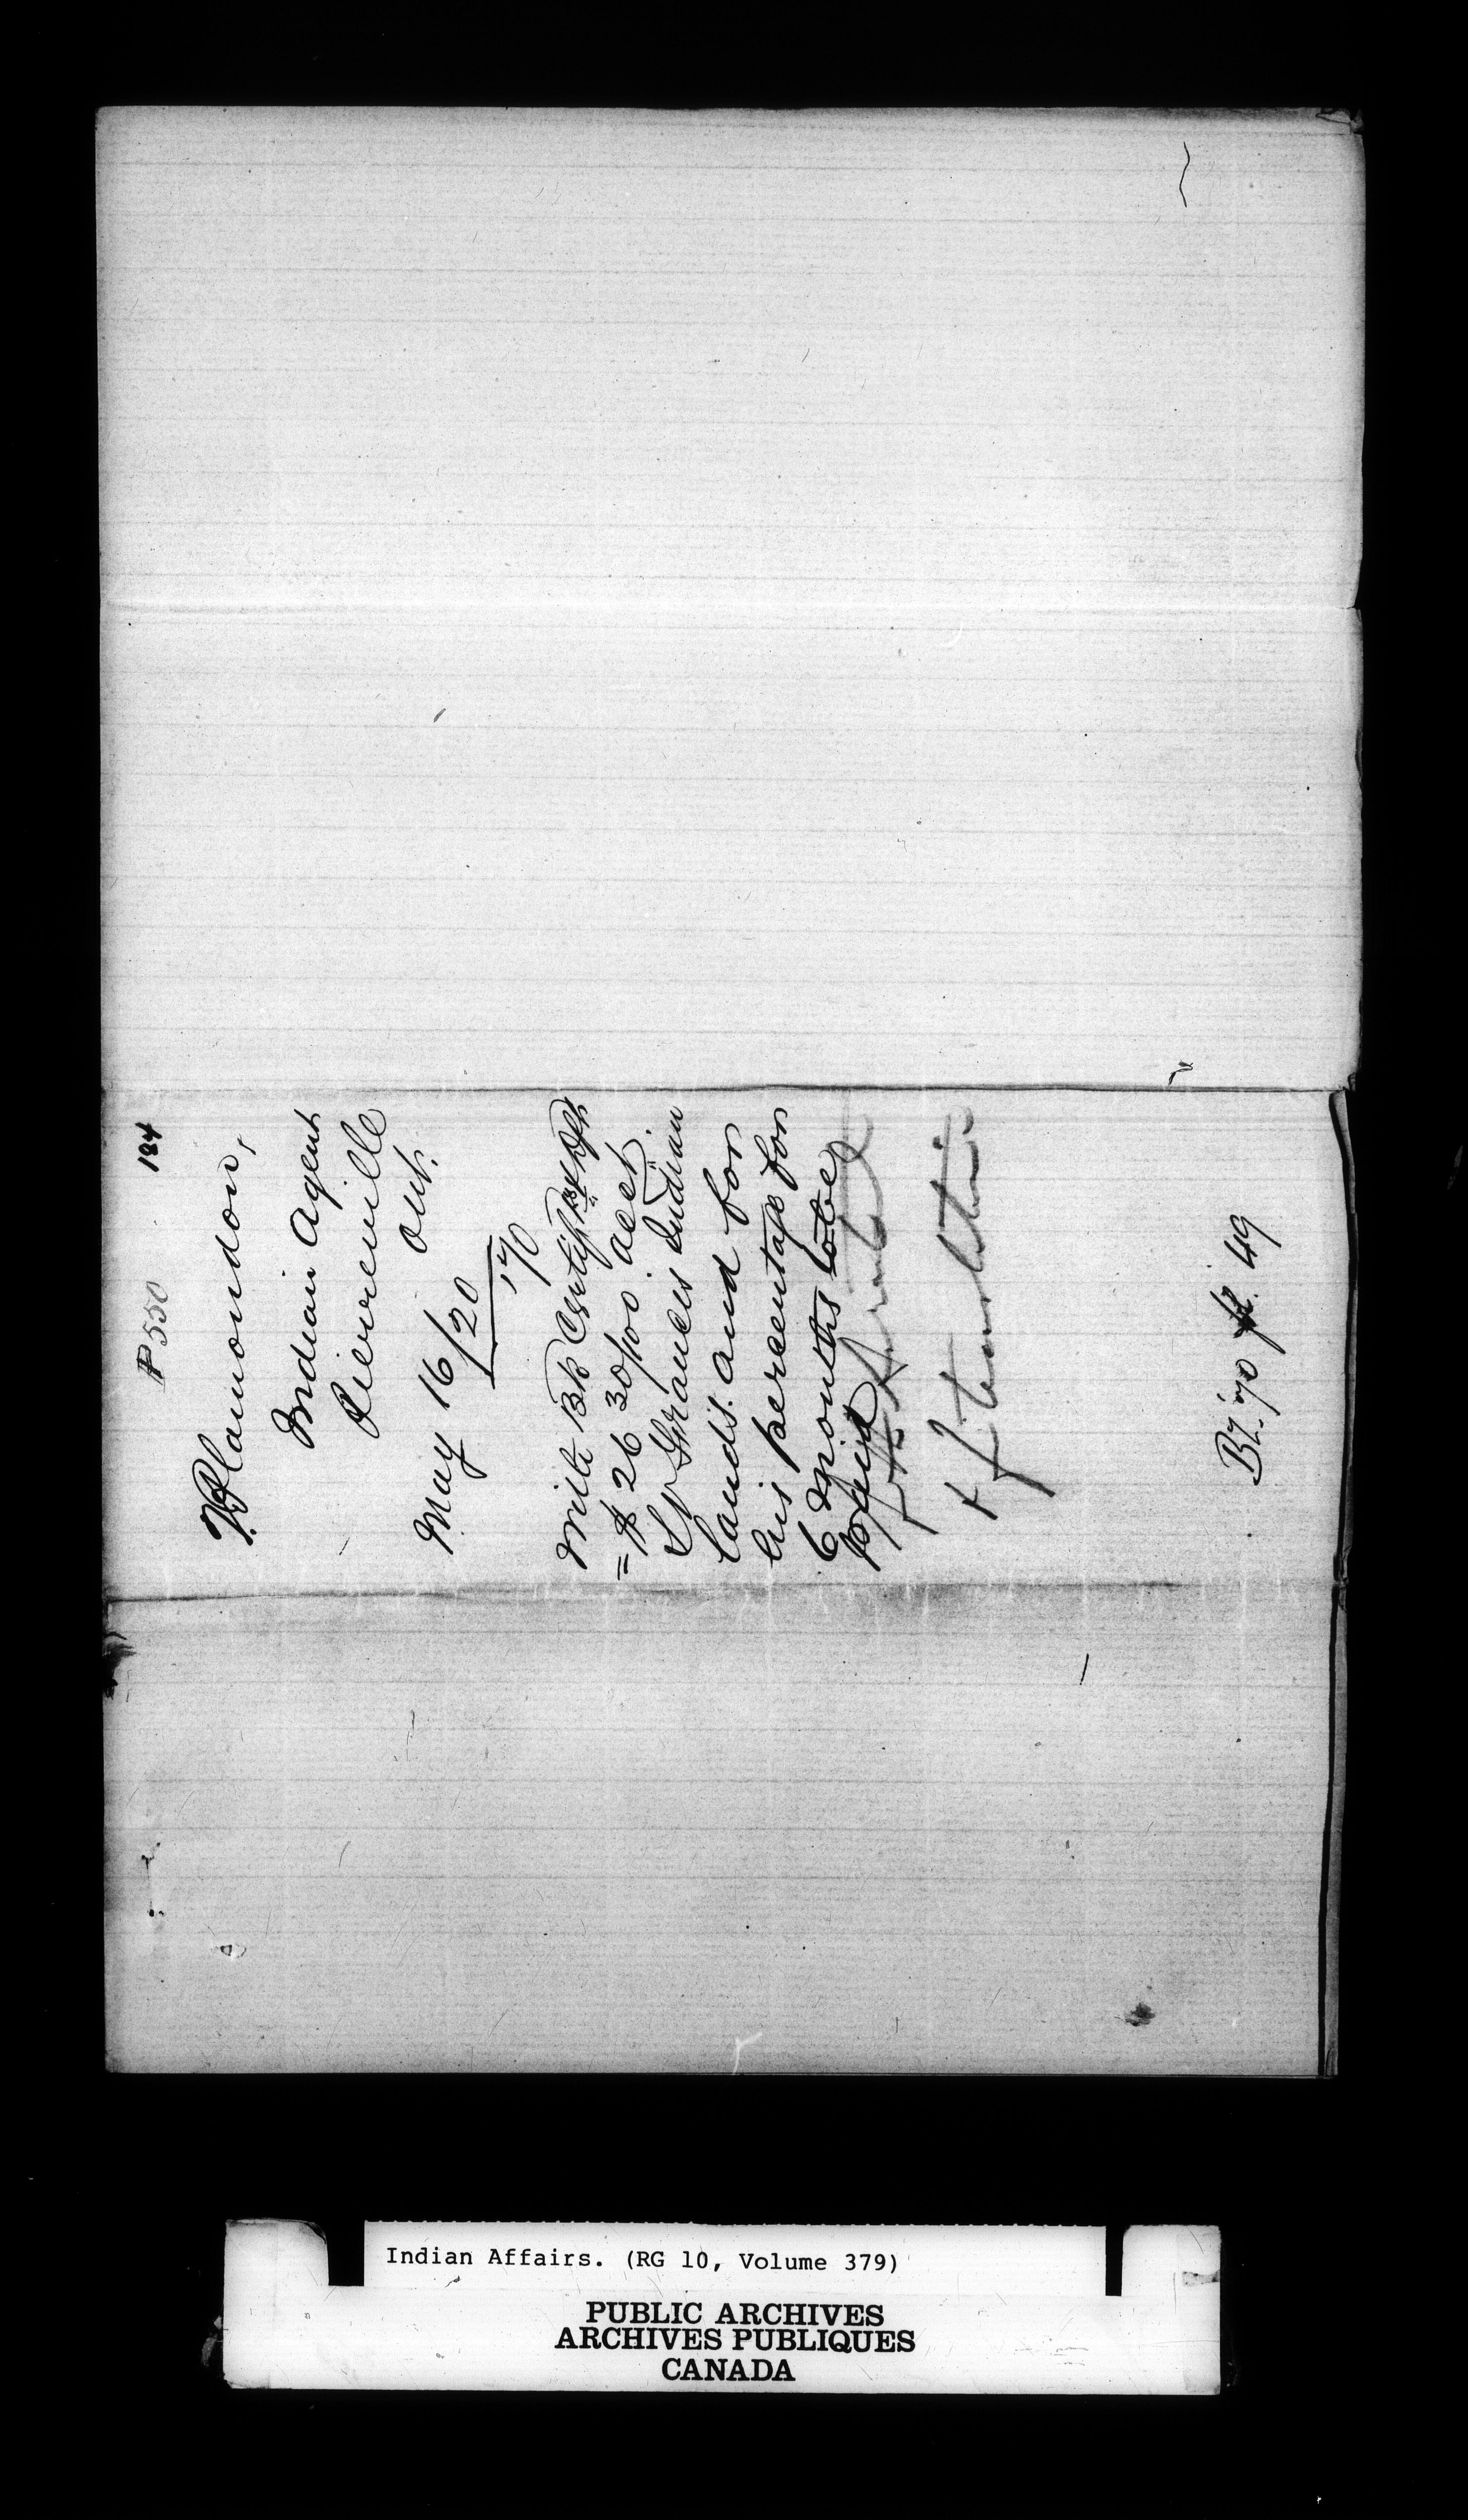 P 550 184
V. Plamondon,
Indian Agent
Pierreville
Ont.
May 16/20 '70
With Bk Certif
= $26 30/100 acct.
St Francis Indian
lands. and for
his percentage for
6 months to be
paid
B7. '70 49
Indian Affairs. (RG 10, Volume 379)
PUBLIC ARCHIVES
ARCHIVES PUBLIQUES
CANADA